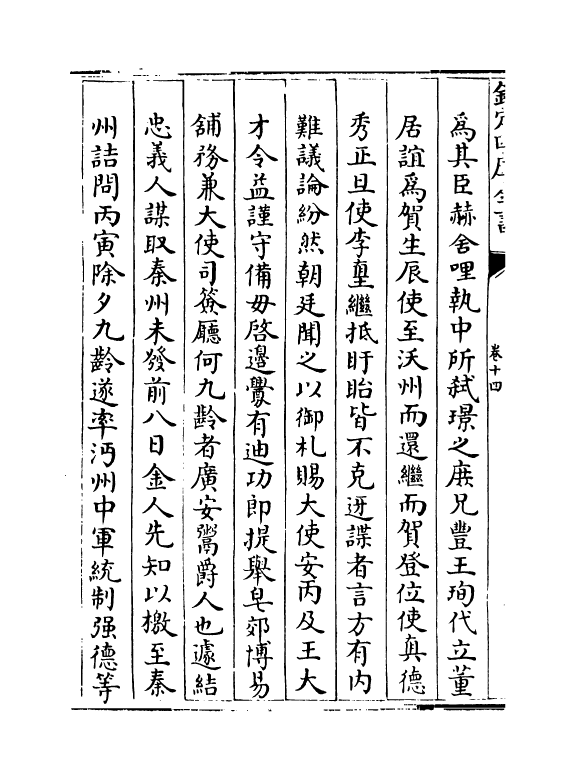 欽定四庫全書
卷十四
爲其臣赫舍哩執中所弒璟之庶兄豐王珣代立董
居誼爲賀生辰使至沃州而還繼而賀登位使眞德
秀正旦使李𡌴繼抵盱眙皆不克迓諜者言方有内
難議論紛然朝廷聞之以御札賜大使安丙及王大
才令益謹守備毋啓邊釁有迪功郎提舉皂郊博易
舖務兼大使司簽廳何九齡者廣安鬻爵人也遽結
忠義人謀取秦州未發前八日金人先知以檄至秦
州詰問丙寅除夕九齡遂率沔州中軍統制强德等